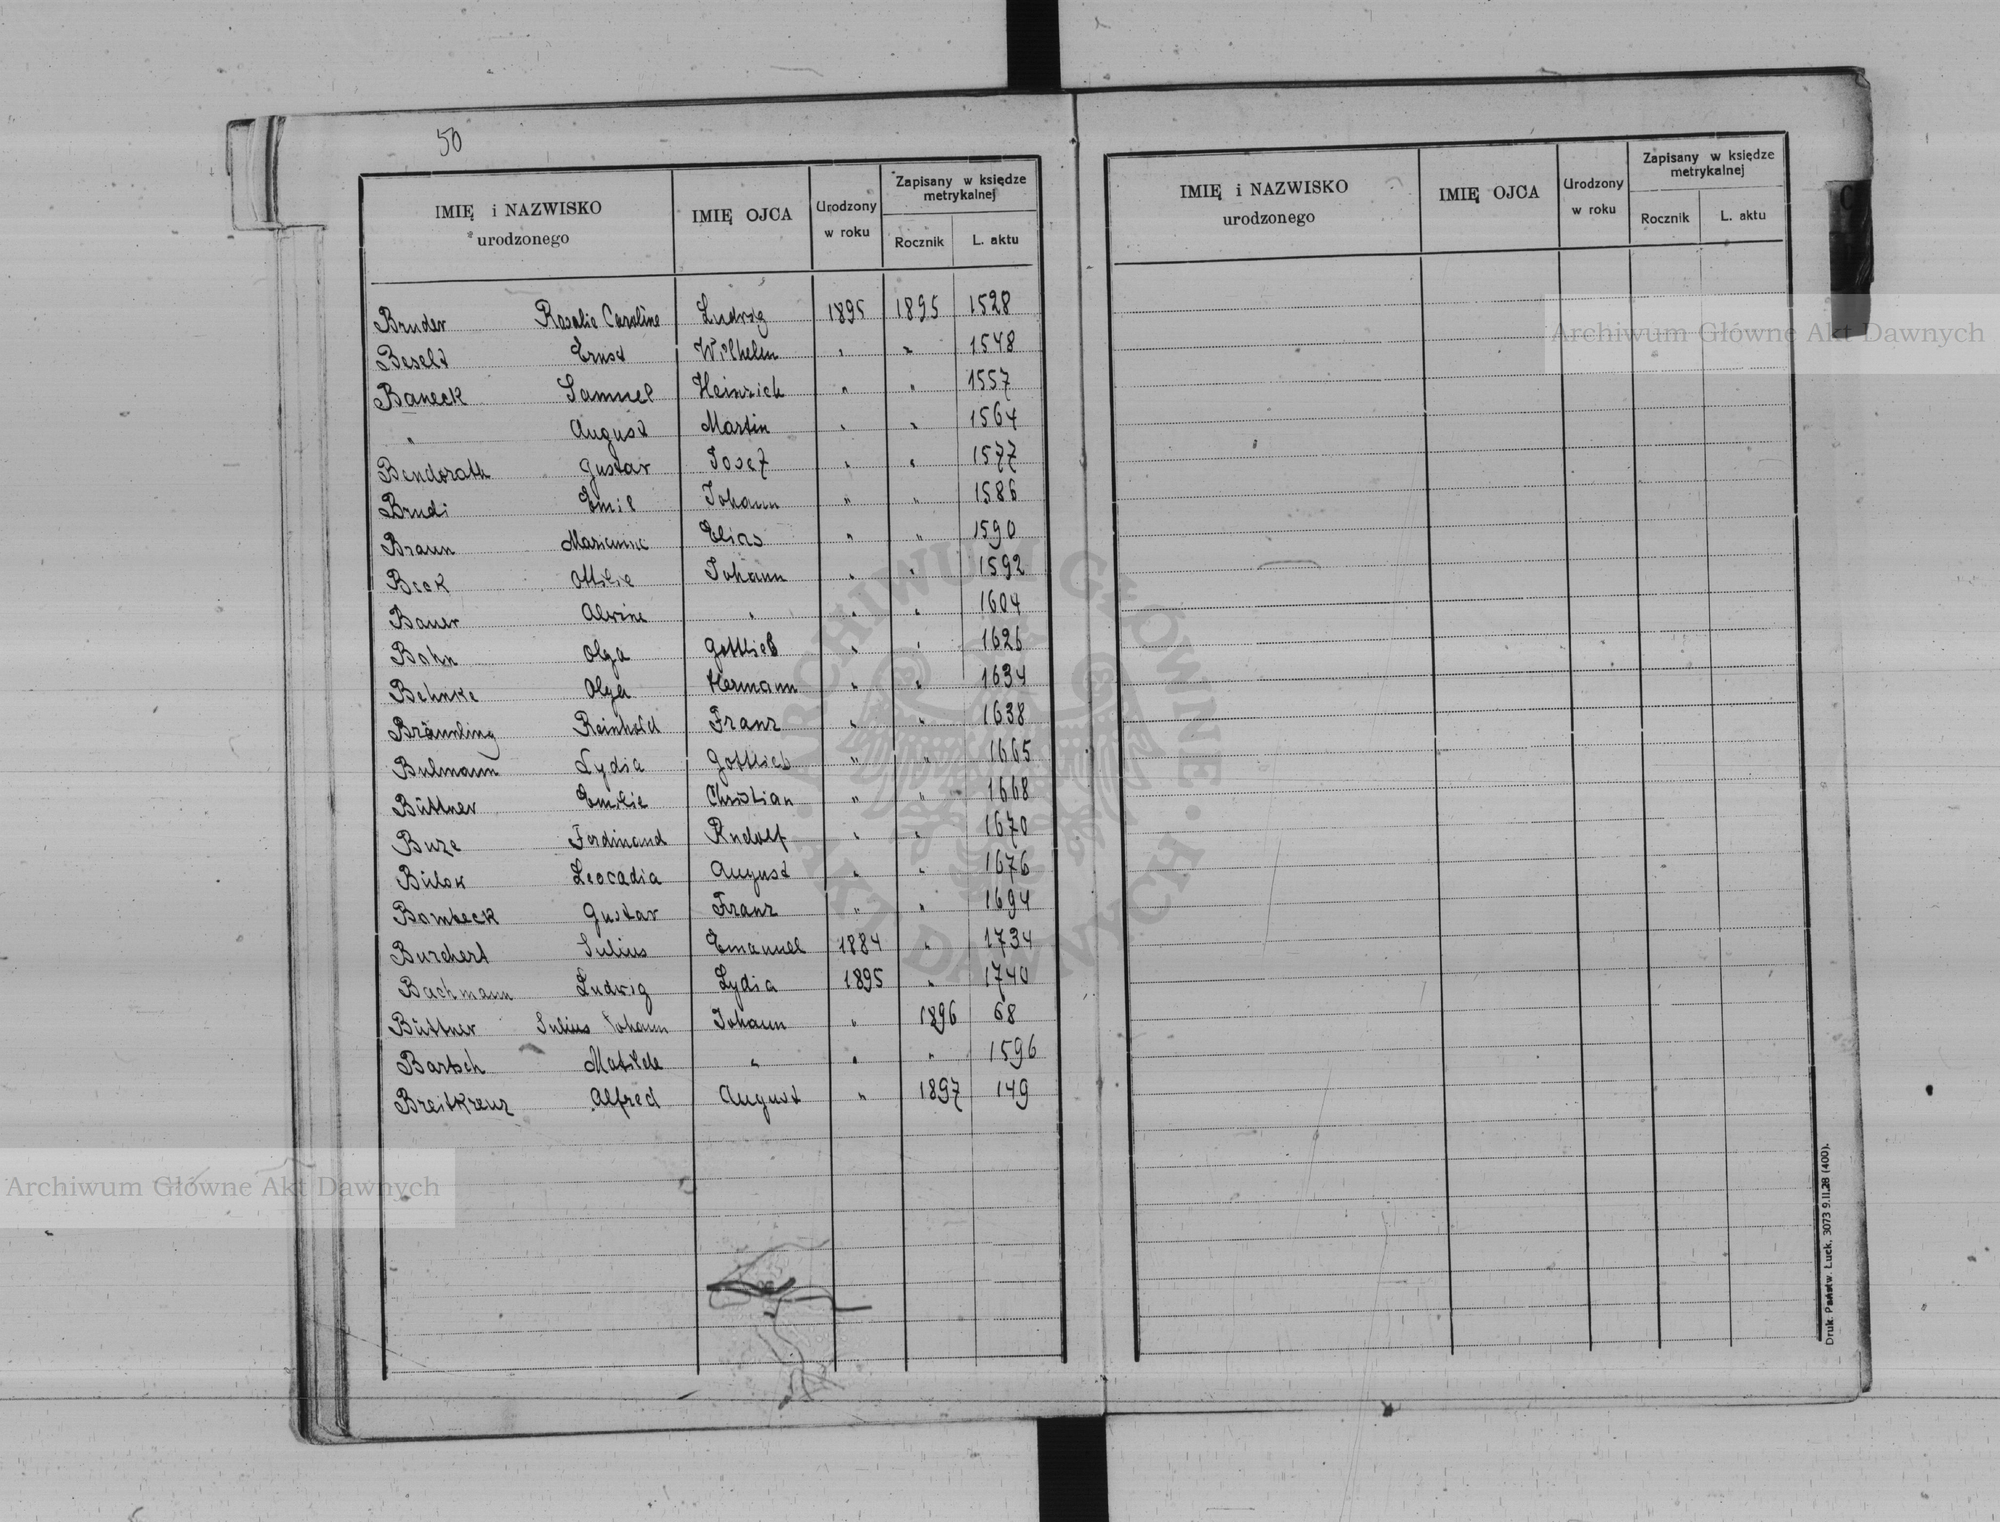 50
IMIĘ i NAZWISKO urodzonego IMIĘ OJCA Urodzony w roku Zapisany w księdze metrykalnej Rocznik L. aktu
Bruder Rosalie Caroline Ludwig 1895 1895 1528
Beselt Ernst Wilhelm " " 1548
Baneck Samuel Heinrich " " 1557
" August Martin " " 1564
Bendorath Gustav Josef " " 1577
Brudi Emil Johann " " 1586
Braun Marianne Elias " " 1590
Beck Ottilie Johann " " 1592
Bauer Alwine " " " 1604
Bohn Olga Gottlieb " " 1626
Behnke Olga Hermann " " 1634
Bräunling Reinhold Franz " " 1638
Bulmann Lydia Gottlieb " " 1665
Büttner Emilie Christian " " 1668
Buze Ferdinand Rudolf " " 1670
Bülow Leocadia August " " 1676
Bombeck Gustav Franz " " 1694
Burchert Julius Emanuel 1884 " 1734
Bachmann Ludwig Lydia 1895 " 1740
Büttner Julius Johann Johann " 1896 68
Bartsch Matilde " " " 1596
Breitkreuz Alfred August " 1897 149
IMIĘ i NAZWISKO urodzonego IMIĘ OJCA Urodzony w roku Zapisany w księdze metrykalnej Rocznik L. aktu
Druk. Państw. Łuck. 3073 9.II.28 (400).
Archiwum Główne Akt Dawnych
Archiwum Główne Akt Dawnych
ARCHIWUM GŁÓWNE · AKT DAWNYCH ·